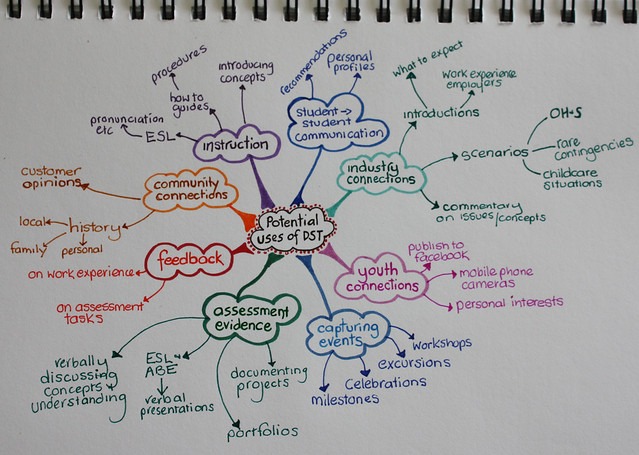 Potential
uses of DST
instruction
procedures
how to
guides
introducing
concepts
pronunciation
etc
ESL
student →
student
communication
recommendations
personal
profiles
industry
connections
introductions
what to expect
work experience
employers
scenarios
OH+S
rare
contingencies
childcare
situations
commentary
on issues/concepts
youth
connections
publish to
facebook
mobile phone
cameras
personal interests
capturing
events
workshops
excursions
Celebrations
milestones
assessment
evidence
documenting
projects
portfolios
ESL +
ABE
verbal
presentations
verbally
discussing
concepts +
understanding
feedback
on work experience
on assessment
tasks
community
connections
customer
opinions
history
local
family
personal